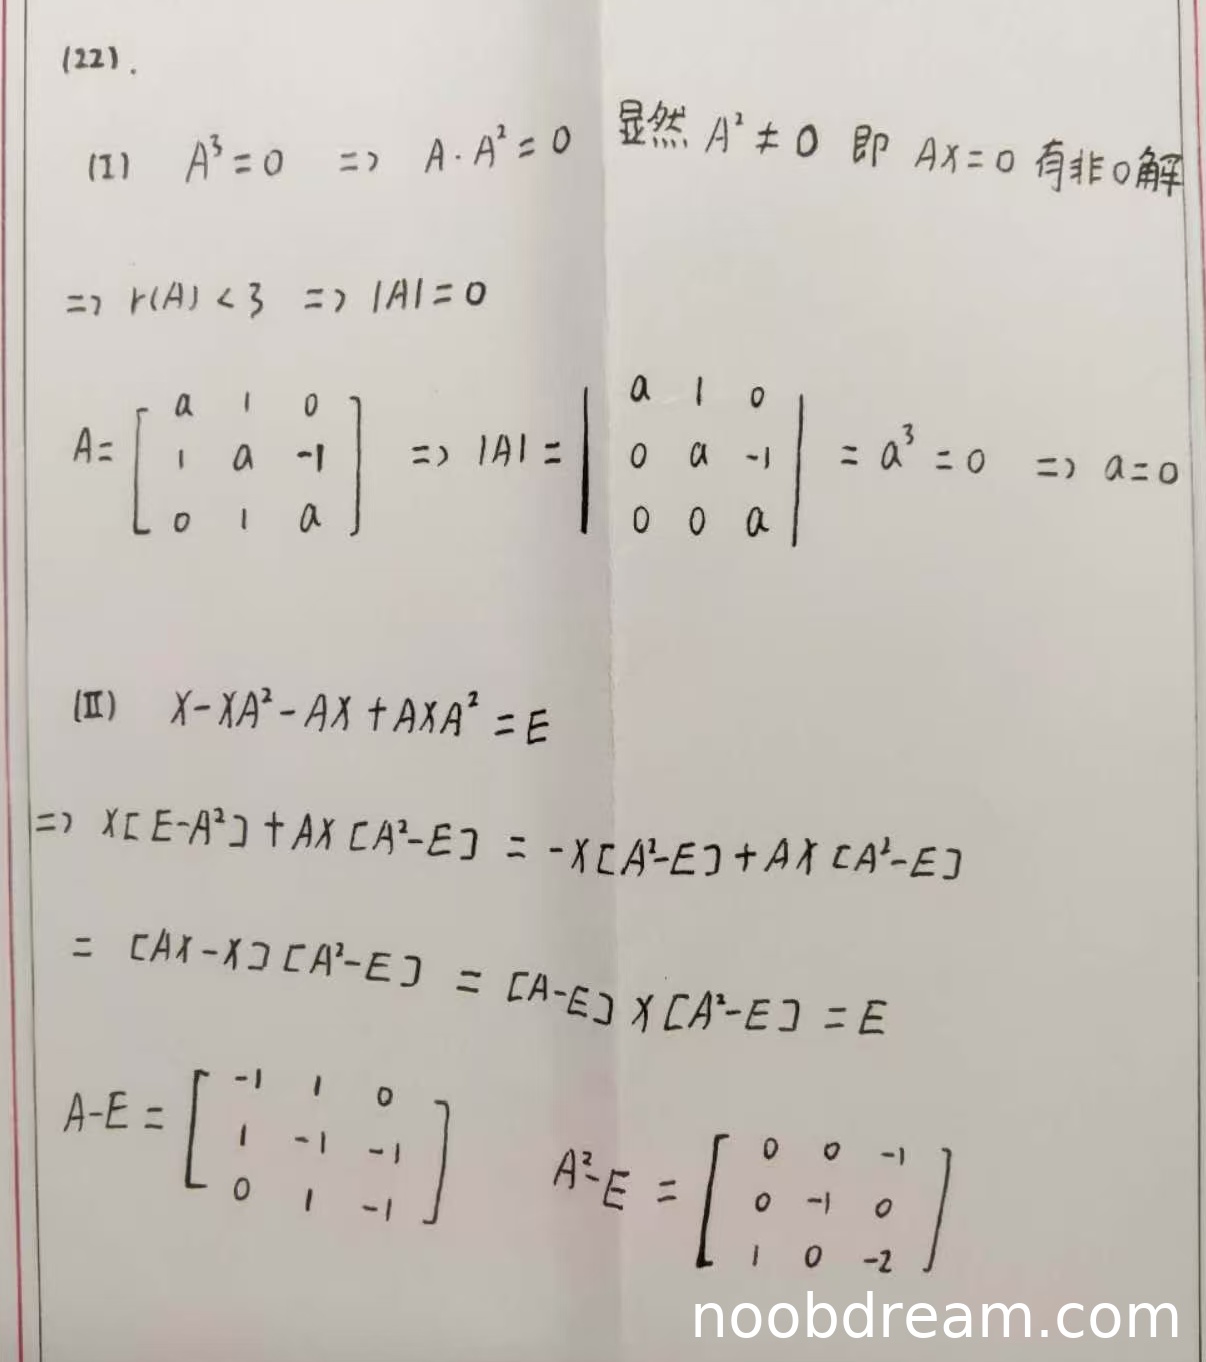 (22).
(I) A³=0 => A·A²=0 显然 A²≠0 即 AX=0 有非0解
=> r(A)<3 => |A|=0
A=[a 1 0
1 a -1
0 1 a] => |A|=|a 1 0
0 a -1
0 0 a| =a³=0 => a=0
(II) X-XA²-AX+AXA²=E
=> X[E-A²]+AX[A²-E] = -X[A²-E]+AX[A²-E]
= [AX-X][A²-E] = [A-E]X[A²-E] = E
A-E=[-1 1 0
1 -1 -1
0 1 -1]
A²-E=[0 0 -1
0 -1 0
1 0 -2]
noobdream.com